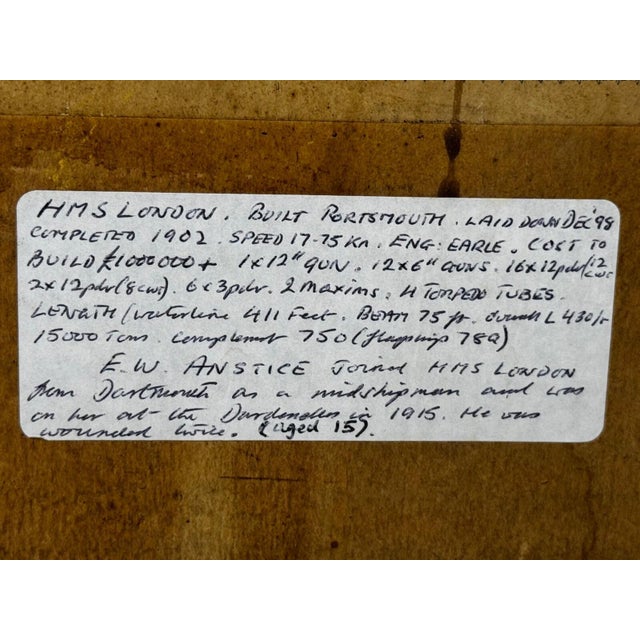 HMS LONDON. BUILT PORTSMOUTH. LAID DOWN DEC '98
COMPLETED 1902. SPEED 17-75 Kn. ENG: EARLE. COST TO
BUILD £1000000+ 1x12" GUN. 12x6" GUNS. 16x12pdr (12 cwt
2x12pdr (8cwt). 6x3pdr. 2 Maxims. 4 TORPEDO TUBES.
LENGTH/waterline 411 feet. BEAM 75 ft. overall L 430 ft
15000 Tons. Complement 750 (flagships 789)
E.W. ANSTICE Joined HMS LONDON
from Dartmouth as a midshipman and was
on her at the Dardenelles in 1915. He was
wounded twice. (aged 15).